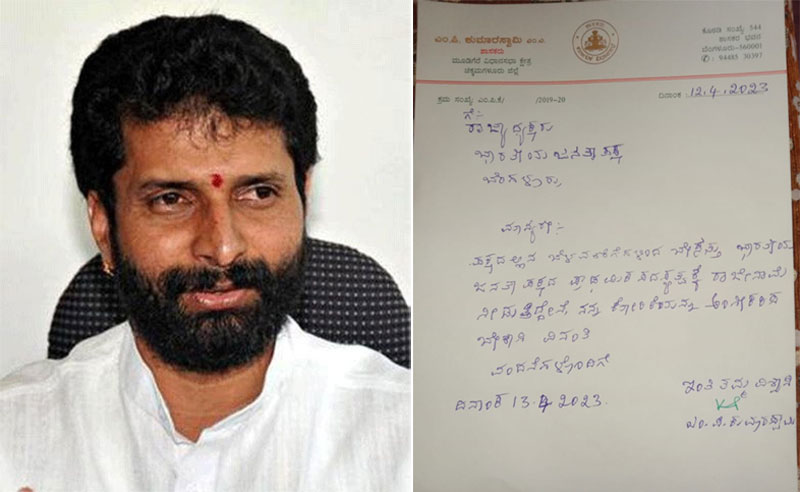 ಎಂ.ಪಿ. ಕುಮಾರಸ್ವಾಮಿ ಎಂ.ಎ.
ಶಾಸಕರು
ಮೂಡಿಗೆರೆ ವಿಧಾನಸಭಾ ಕ್ಷೇತ್ರ
ಚಿಕ್ಕಮಗಳೂರು ಜಿಲ್ಲೆ
ಕೊಠಡಿ ಸಂಖ್ಯೆ: 544
ಶಾಸಕರ ಭವನ
ಬೆಂಗಳೂರು-560001
: 94485 30397
ಕ್ರಮ ಸಂಖ್ಯೆ: ಎಂ.ಪಿ.ಕೆ/ /2019-20
ದಿನಾಂಕ: 12.4.2023
ಗೆ:-
ರಾಜ್ಯಾಧ್ಯಕ್ಷರು
ಭಾರತೀಯ ಜನತಾ ಪಕ್ಷ
ಬೆಂಗಳೂರು,
ಮಾನ್ಯರೇ:-
ಪಕ್ಷದಲ್ಲಿನ ಬೇಸತ್ತು ಭಾರತೀಯ
ಜನತಾ ಪಕ್ಷದ ಪ್ರಾಥಮಿಕ ಸದಸ್ಯತ್ವಕ್ಕೆ ರಾಜೀನಾಮೆ
ನೀಡುತ್ತಿದ್ದೇನೆ, ನನ್ನ ಕೋರಿಕೆಯನ್ನು ಅಂಗೀಕರಿಸ
ಬೇಕಾಗಿ ವಿನಂತಿ
ವಂದನೆಗಳೊಂದಿಗೆ
ದಿನಾಂಕ 13.4.2023.
ಇಂತಿ ತಮ್ಮ ವಿಶ್ವಾಸಿ
ಎಂ.ಪಿ.ಕುಮಾರಸ್ವಾಮಿ